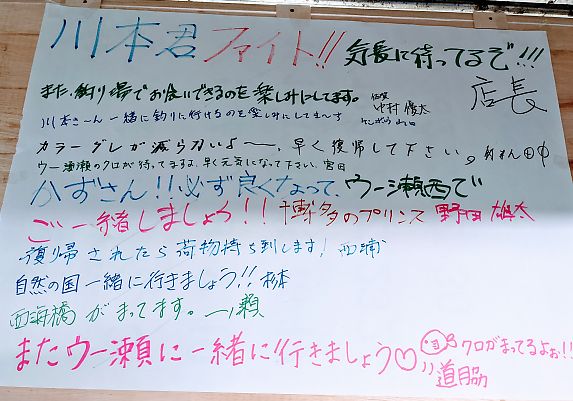 川本君 ファイト!! 気長に待ってるぞ!!!
店長
また、釣り場でお会いできるのを楽しみにしてます。 佐賀 中村慎太
川本さーん一緒に釣りに行けるのを楽しみにしてまーす
カラーグレが減らないよ〜、早く復帰して下さい。
ウー瀬のクロが待ってますよ、早く元気になって下さい、宮田
かずさん!!必ず良くなって、ウー瀬西で
ご一緒しましょう!! 博多のプリンス 野田雄太
復帰されたら荷物持ち到します! 西浦
自然の国一緒に行きましょう!! 杉本
西海橋がまってます。一ノ瀬
またウー瀬に一緒に行きましょう♡ クロがまってるよぉ!!
道脇